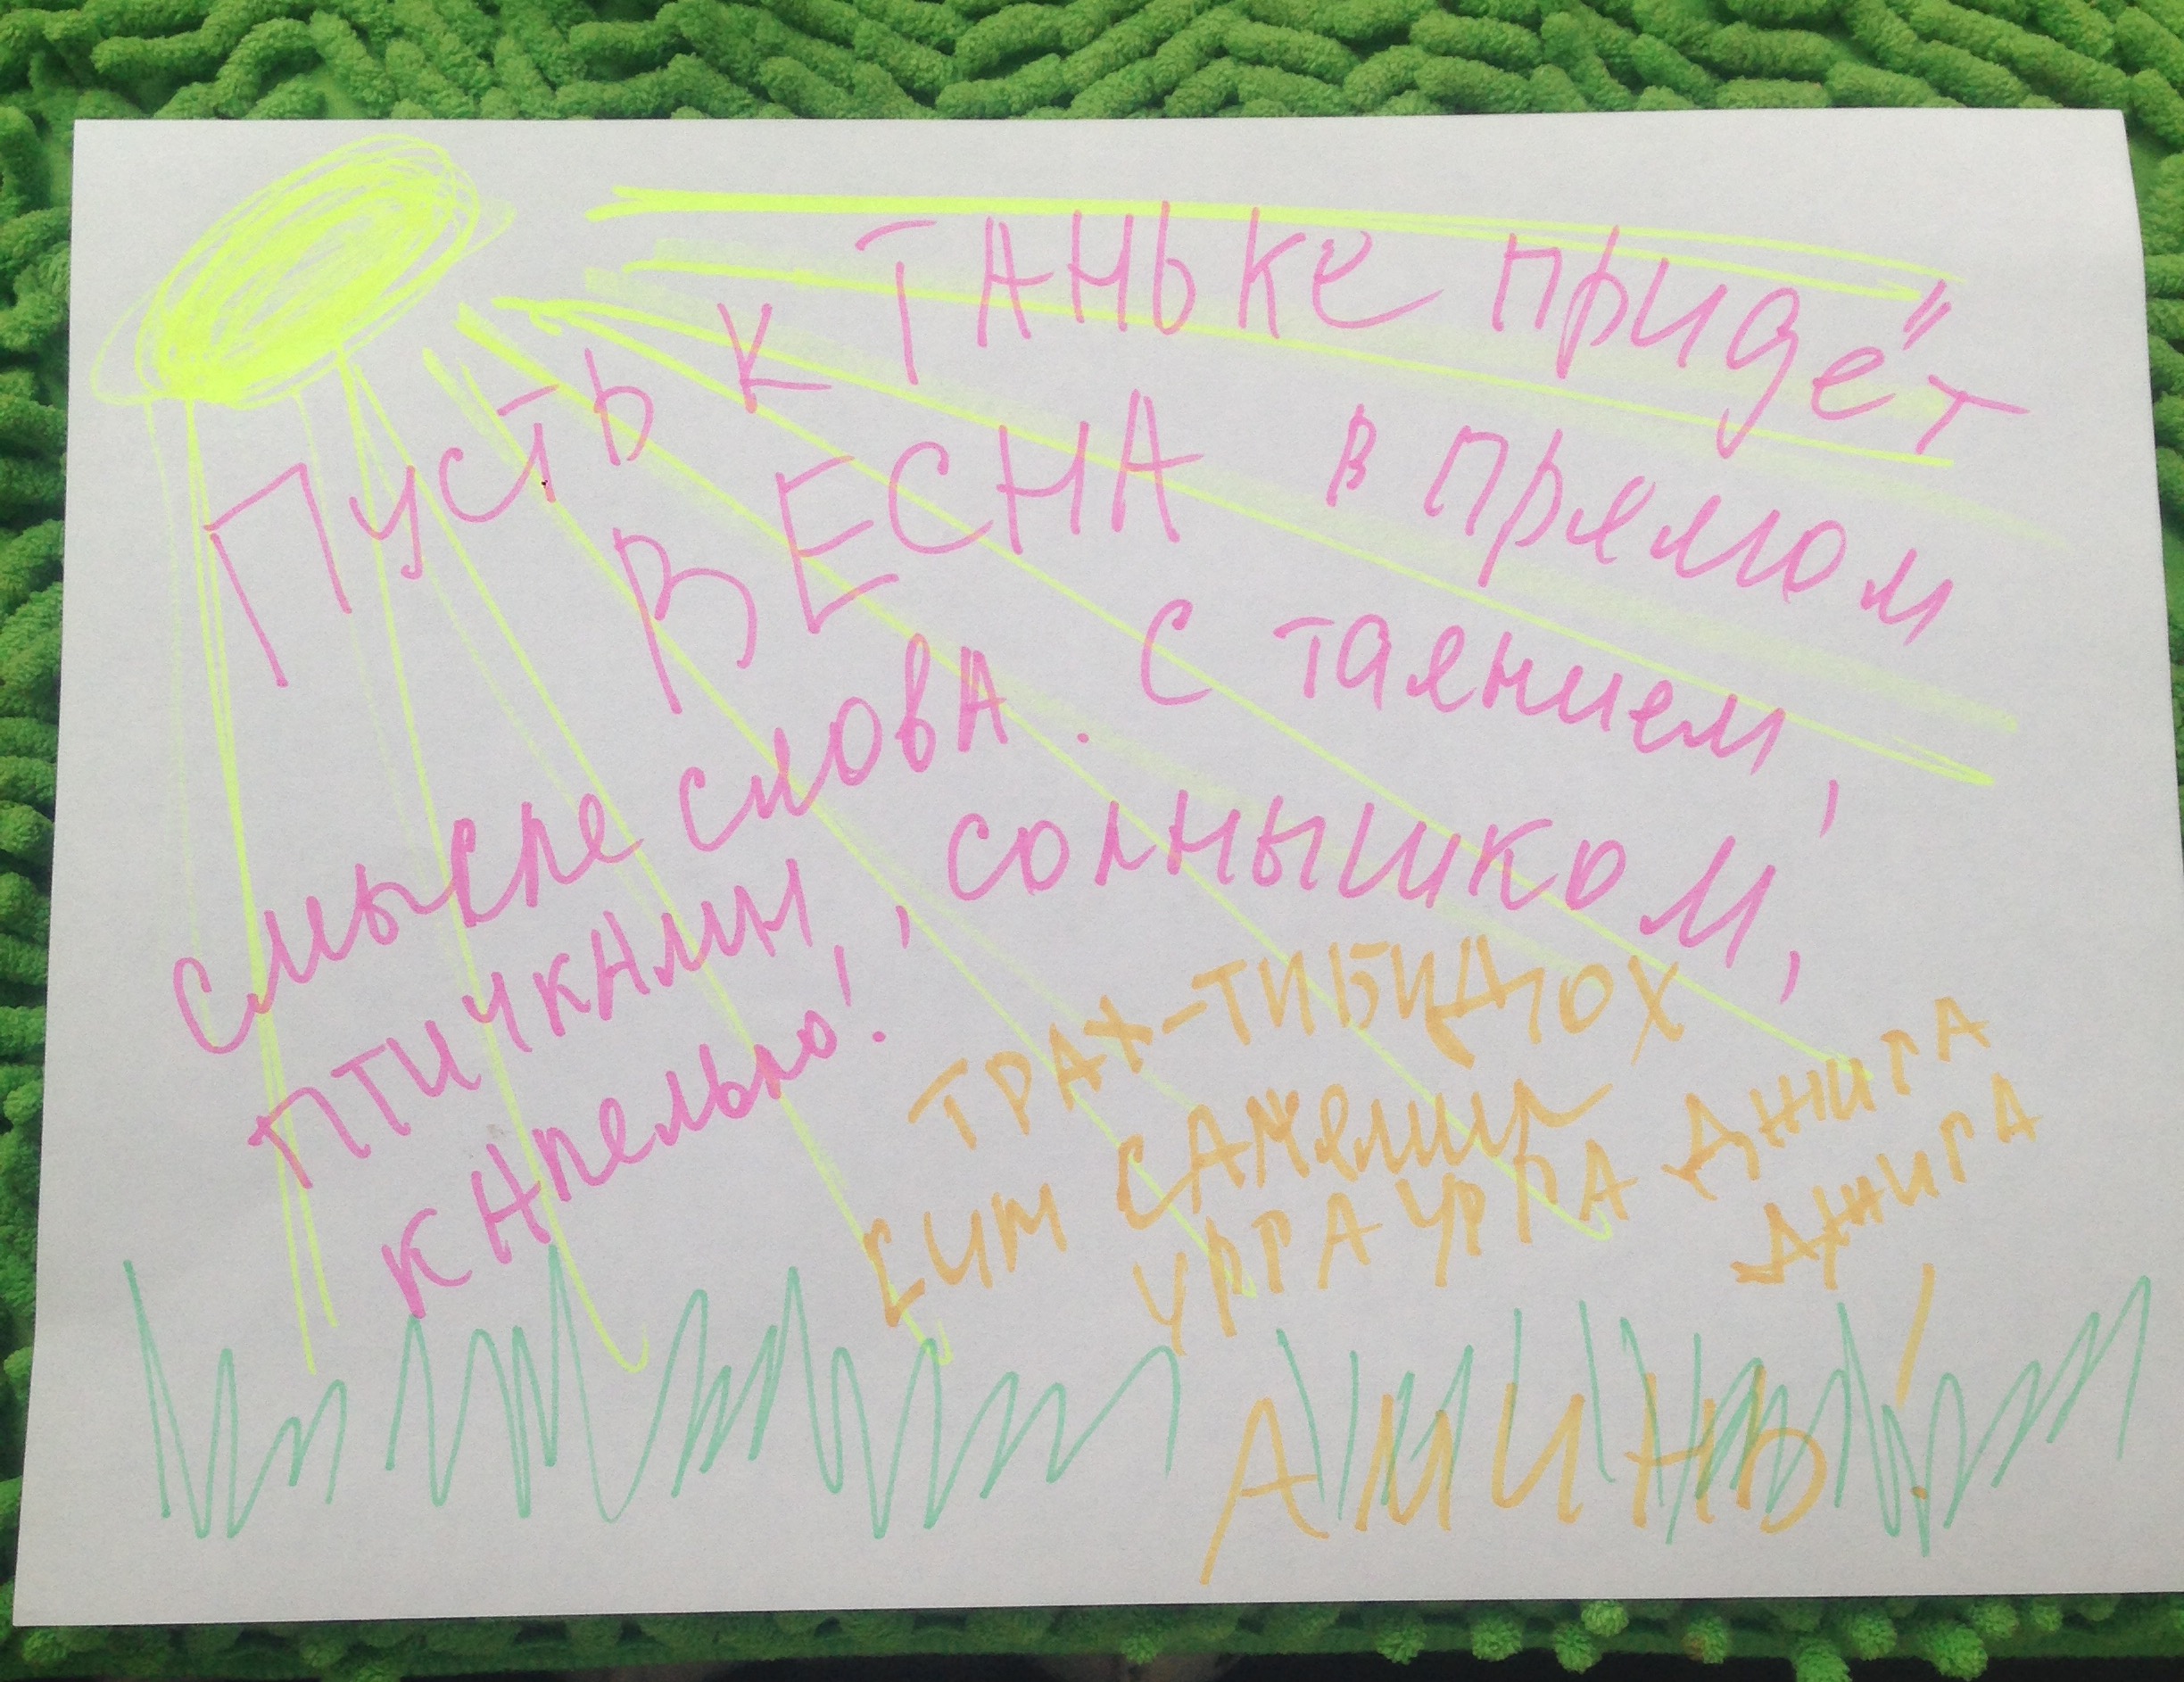 Пусть к Таньке придёт
ВЕСНА в прямом
смысле слова. С таянием,
птичками, солнышком,
капелью!
ТРАХ-ТИБИДОХ
СИМ
УРГА УРГА ДЖИГА
ДЖИГА
АМИНЬ!